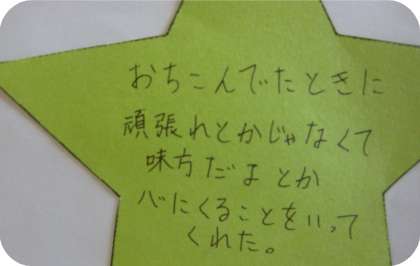 おちこんでたときに
頑張れとかじゃなくて
味方だよとか
心にくることをいって
くれた。